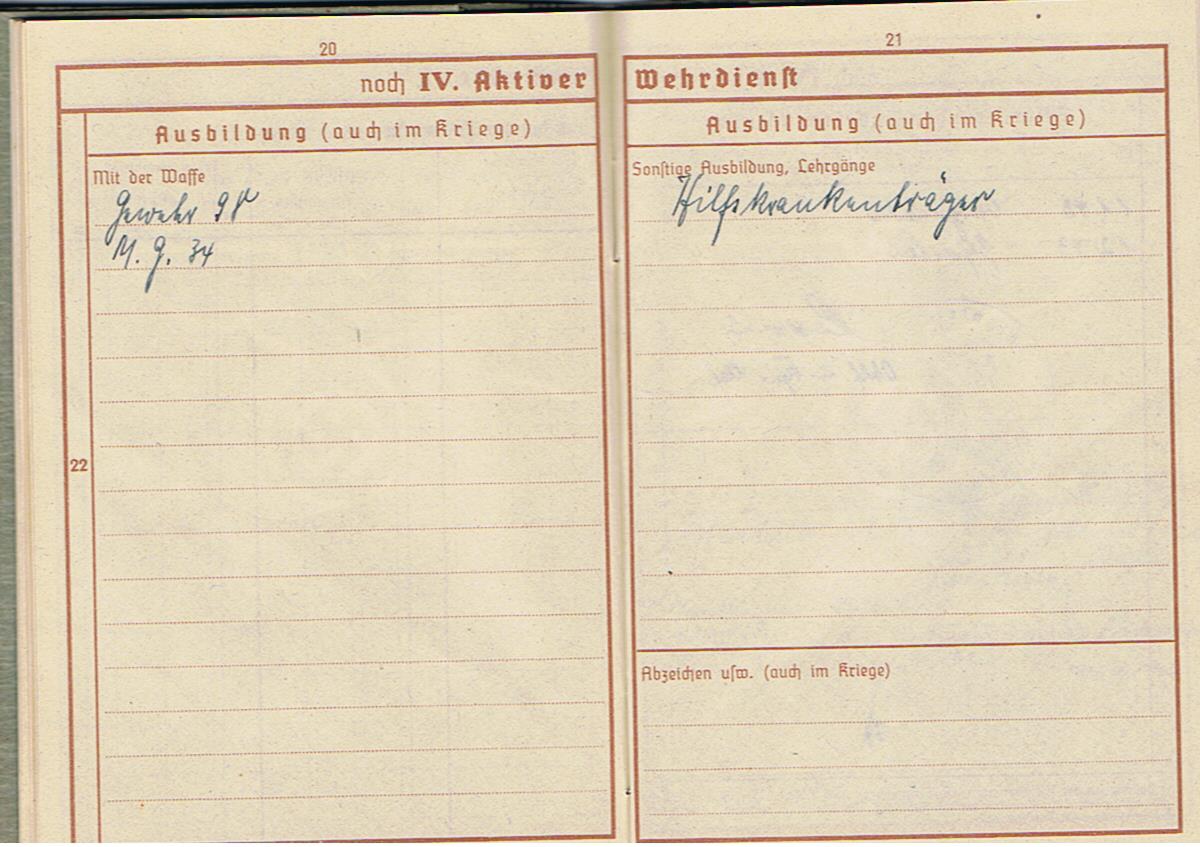 20
noch IV. Aktiver
Ausbildung (auch im Kriege)
Mit der Waffe
Gewehr 98
M. G. 34
22
21
Wehrdienst
Ausbildung (auch im Kriege)
Sonstige Ausbildung, Lehrgänge
Hilfskrankenträger
Abzeichen usw. (auch im Kriege)